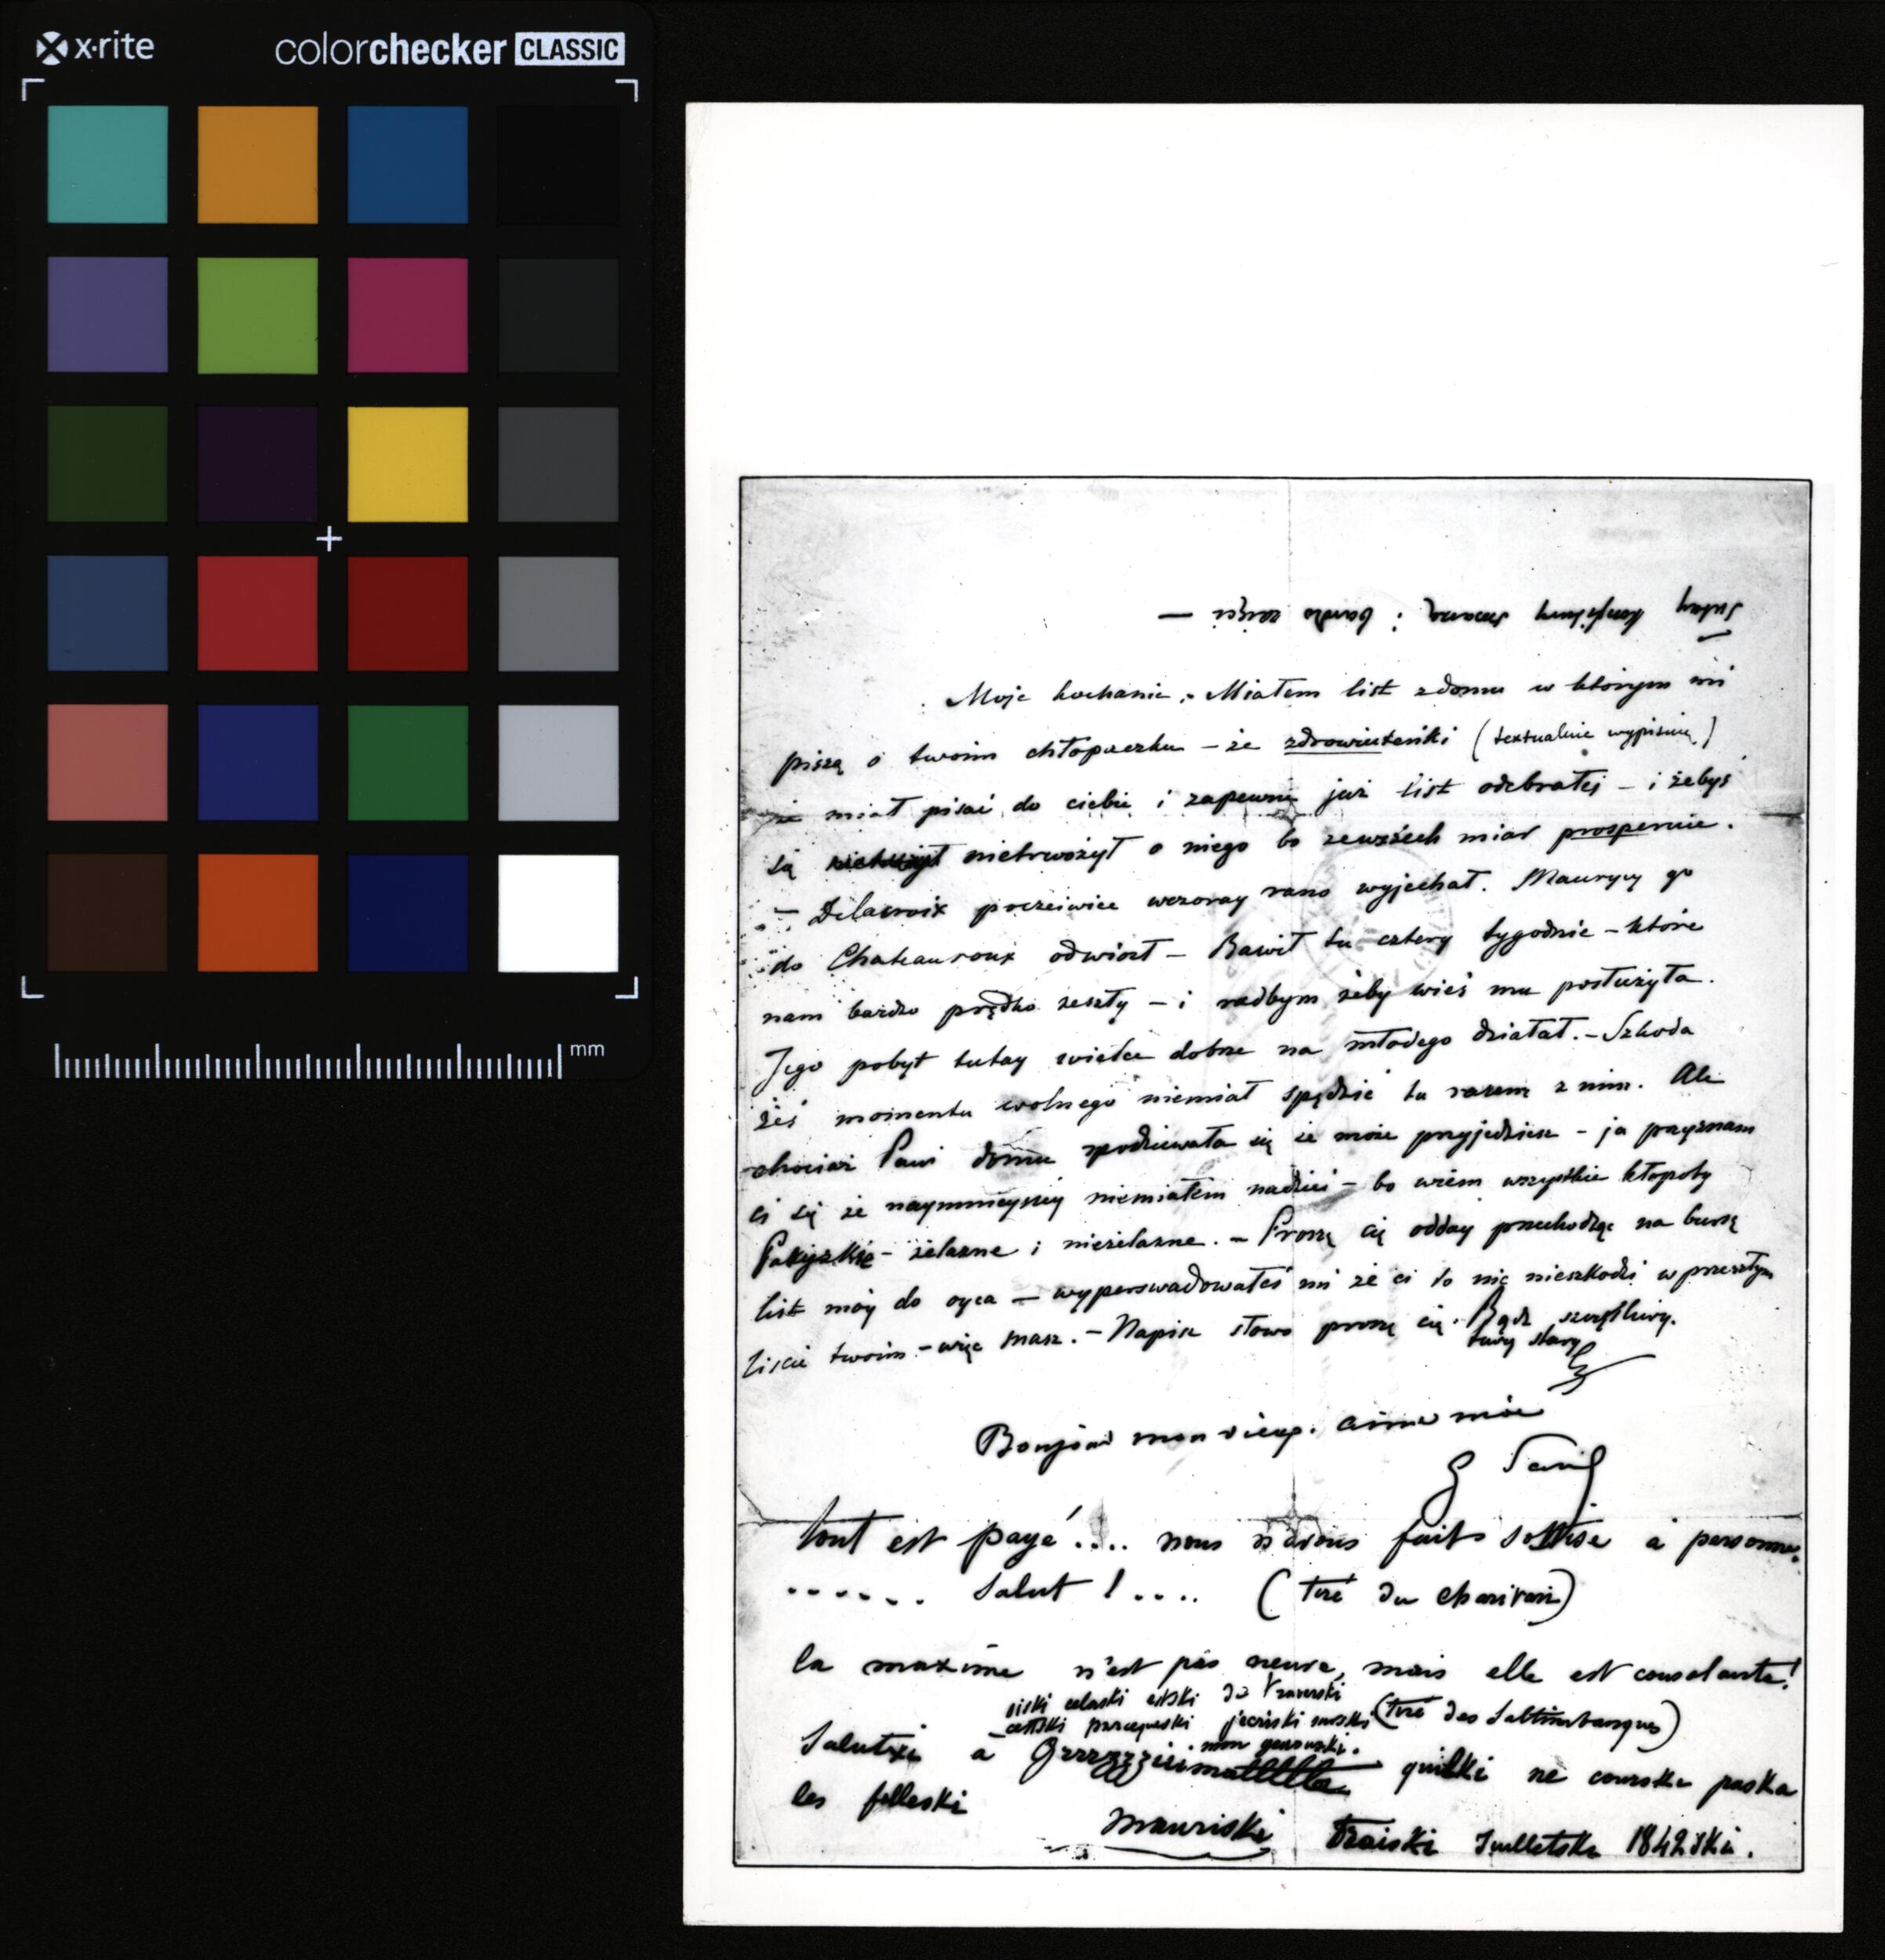 x·rite
colorchecker CLASSIC
mm
Moje kochanie. Miałem list z domu w którym mi
piszą o twoim chłopaczku – że zdrowiuteńki (textualnie wypisuię)
że miał pisać do ciebie i zapewne już list odebrałeś – i żebyś
się nietrwożył o niego bo zewszech miar prosperuie.
– Delacroix poczciwiec wczoray rano wyjechał. Maurycy go
do Chateauroux odwiozł – Bawił tu cztery tygodnie – które
nam bardzo prędko zeszły – i radbym żeby wieś mu posłużyła.
Jego pobyt tutay wielce dobrze na młodego działał. – Szkoda
żeś momentu wolnego niemiał spędzić tu razem z nim. Ale
chociaż Pani domu spodziewała się że może przyjedziesz – ja przyznam
ci się że naymnieyszéy niemiałem nadziei – bo wiem wszystkie kłopoty
Paryzkie – żelazne i nieżelazne. – Proszę cię odday przechodząc na bursę
list móy do oyca – wyperswadowałeś mi że ci to nic nieszkodzi w przeszłym
liście twoim – więc masz. – Napisz słowo proszę cię. Bądź szczęśliwy.
twóy stary
Bonjour mon vieux. aime moi
G Sand
tout est payé .... nous n'avons faits sottise à personne.
...... Salut ! .... (tiré du charivari)
la maxime n'est pas neuve, mais elle est consolante!
(tiré des Saltimbanques)
mon
Salutxi à quilki ne courski paska
les filleski
Mauriski Traiski Juilletski 1842ski.